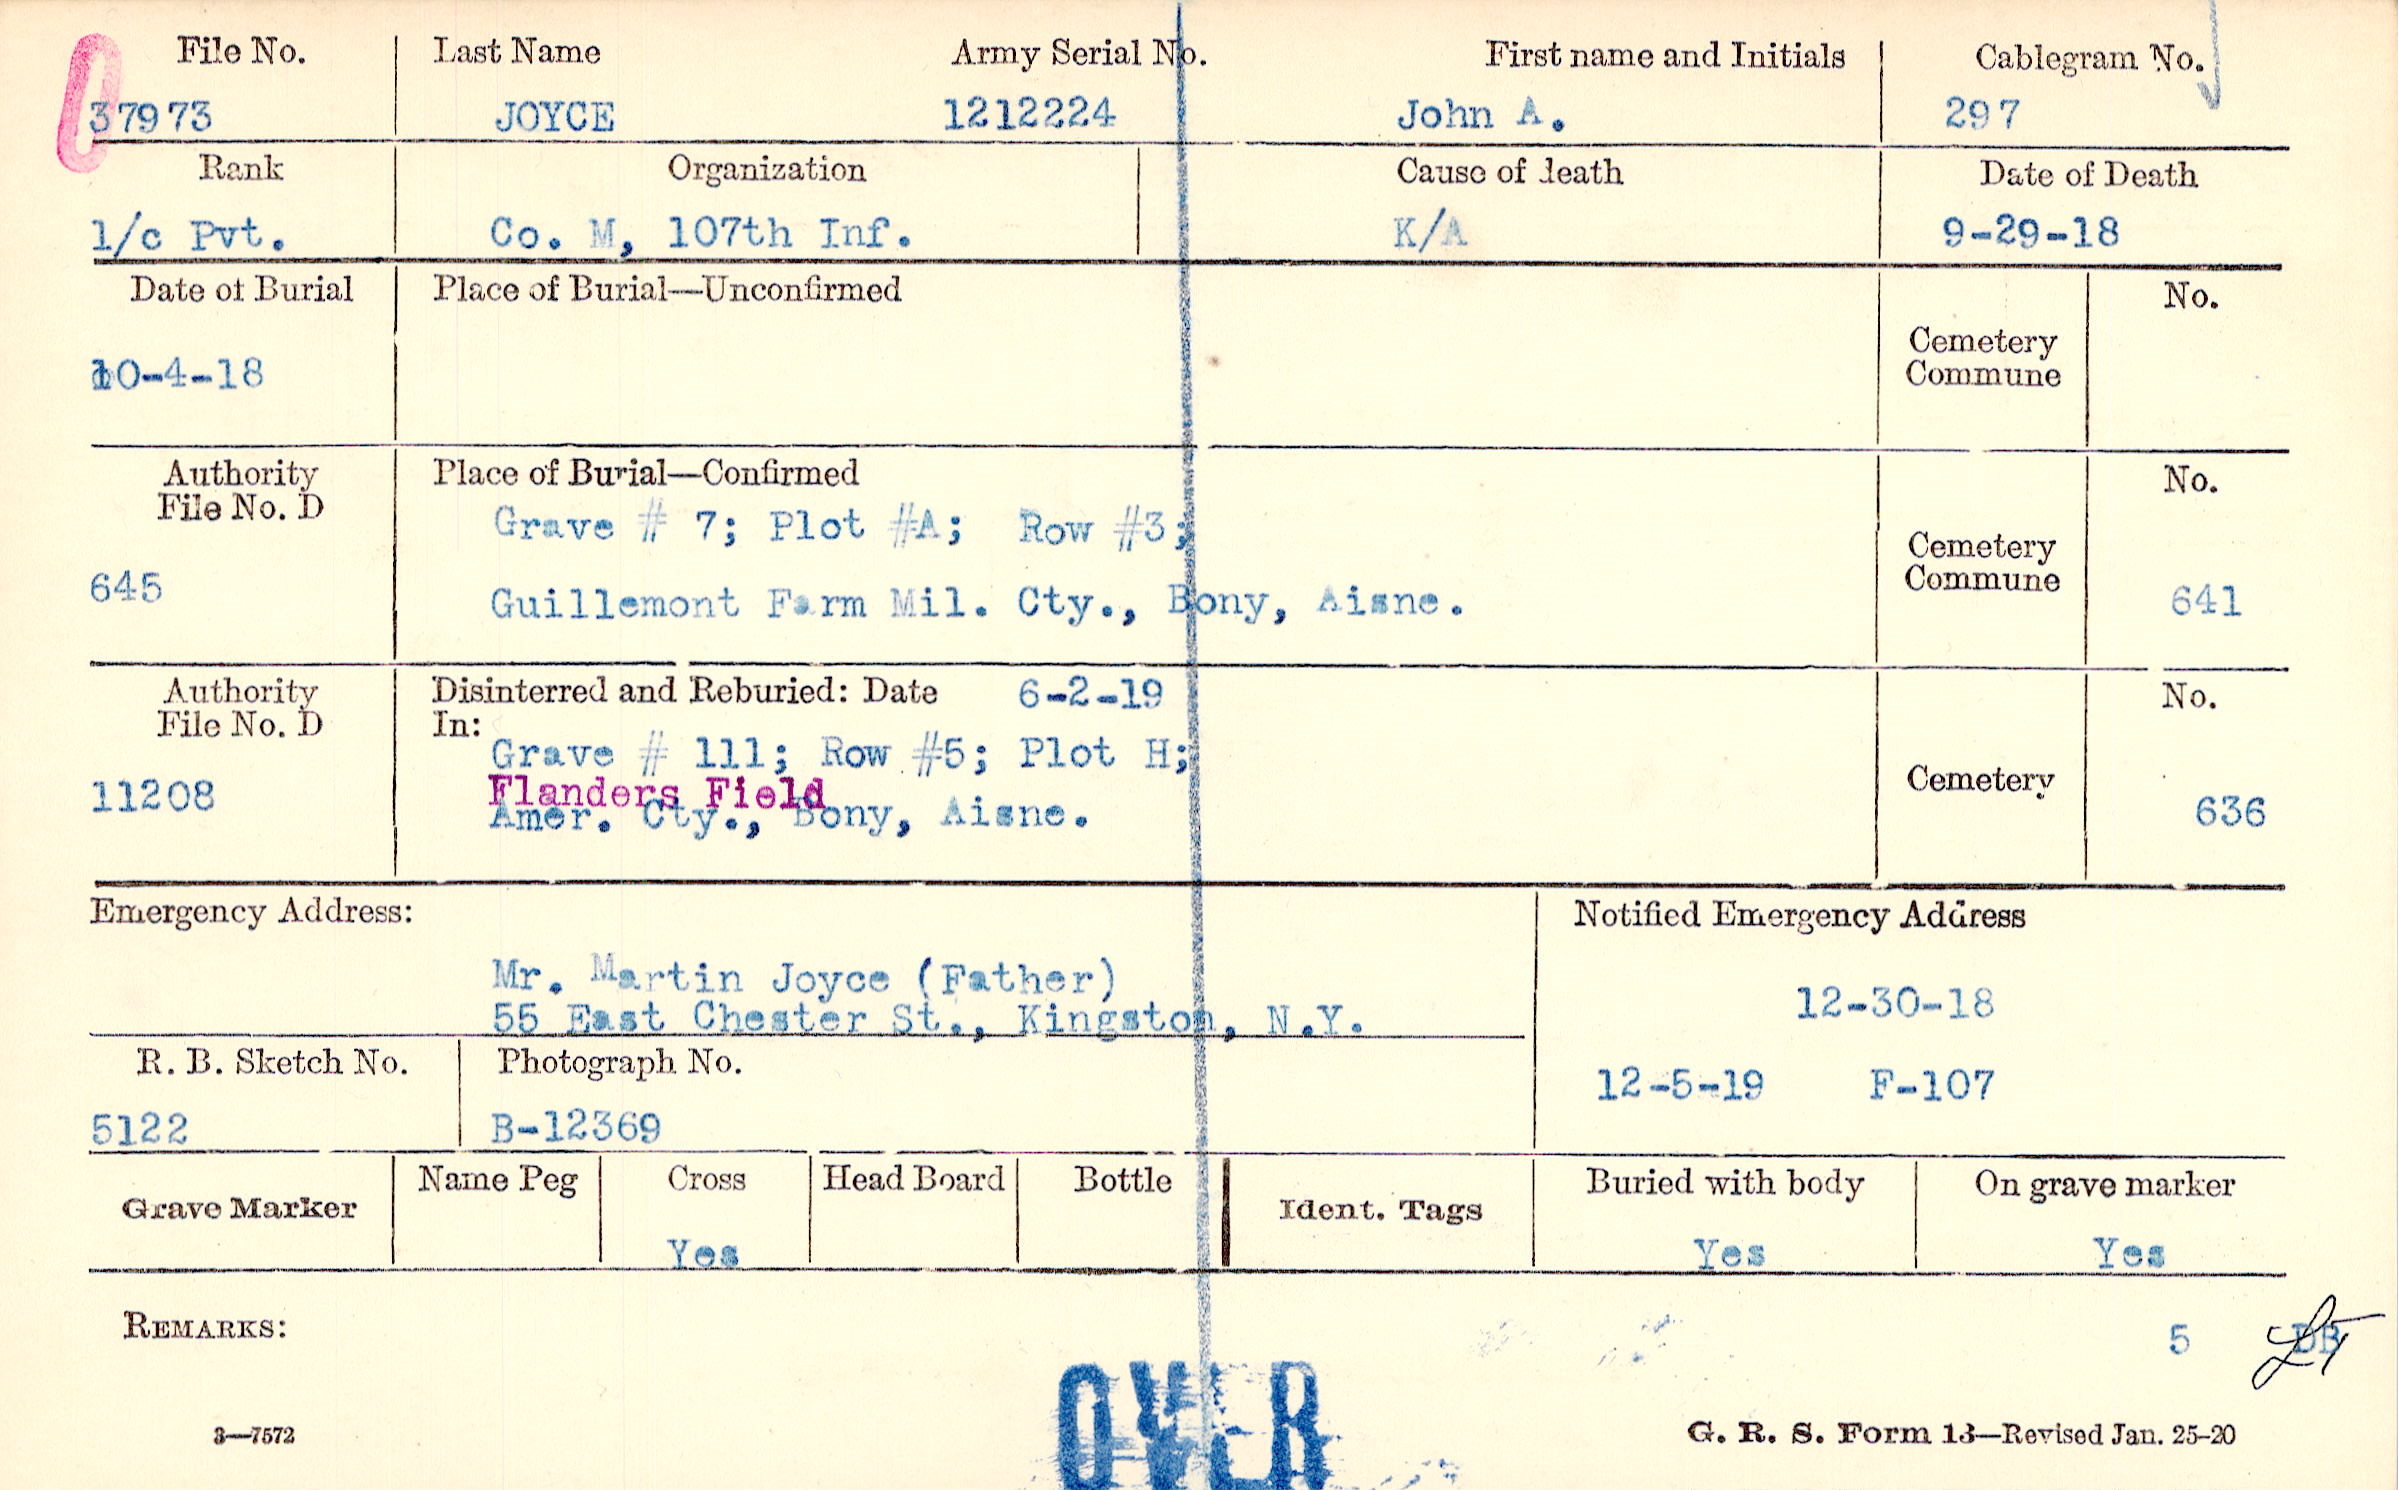 File No. Last Name Army Serial No. First name and Initials Cablegram No.
37973 JOYCE 1212224 John A. 297
Rank Organization Cause of death Date of Death
1/c Pvt. Co. M, 107th Inf. K/A 9-29-18
Date of Burial Place of Burial—Unconfirmed Cemetery Commune No.
10-4-18
Authority File No. D Place of Burial—Confirmed Cemetery Commune No.
Grave # 7; Plot #A; Row #3;
645 Guillemont Farm Mil. Cty., Bony, Aisne. 641
Authority File No. D Disinterred and Reburied: Date 6-2-19 Cemetery No.
In:
Grave # 111; Row #5; Plot H;
Flanders Field
11208 Amer. Cty., Bony, Aisne. 636
Emergency Address: Notified Emergency Address
Mr. Martin Joyce (Father) 12-30-18
55 East Chester St., Kingston, N.Y.
R. B. Sketch No. Photograph No. 12-5-19 F-107
5122 B-12369
Grave Marker Name Peg Cross Head Board Bottle Ident. Tags Buried with body On grave marker
Yes Yes Yes
REMARKS: 5 DB
OVER
3—7572 G. R. S. Form 13—Revised Jan. 25-20